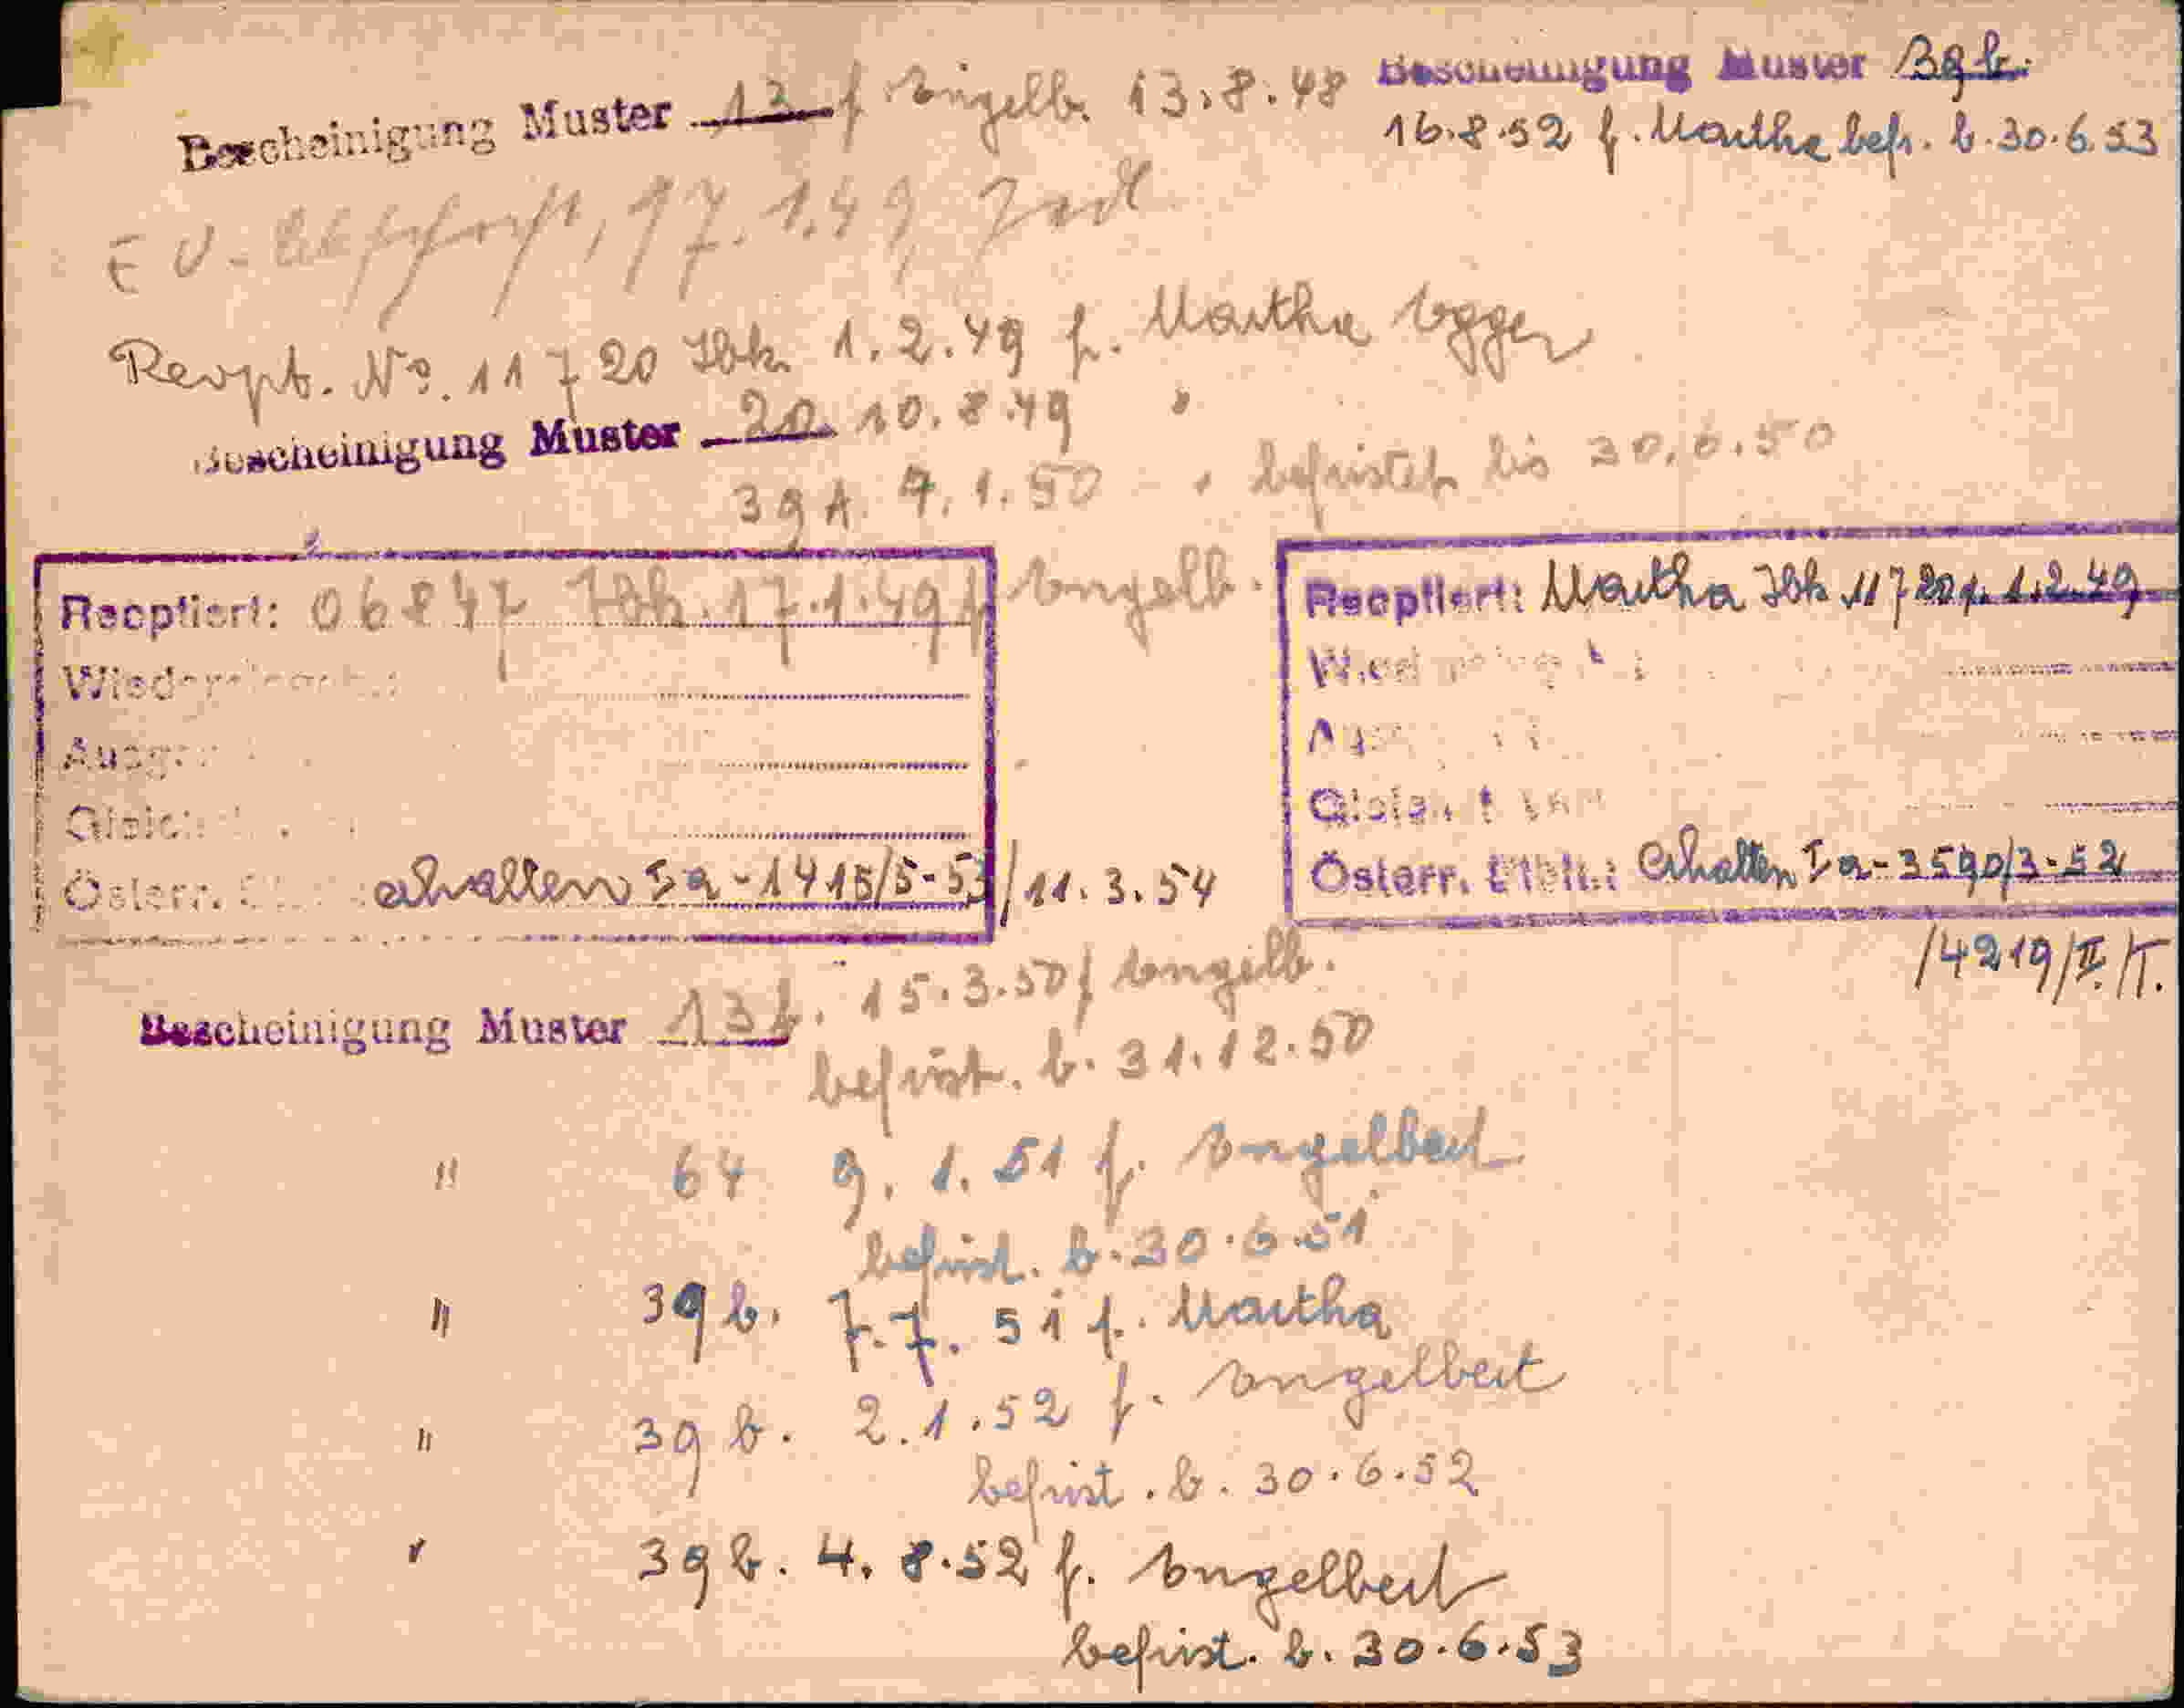 Bescheinigung Muster 13 f Engelb. 13.8.48
Bescheinigung Muster 39 b.
16.8.52 f. Martha befr. b. 30.6.53
EU-Abschrift, 17.1.49,
Reopt. No. 11720 Ibk 1.2.49 f. Martha Egger
Bescheinigung Muster 20. 10.8.49 "
39 A. 7.1.50 " befristet bis 30.6.50
Reoptiert: 06847 Ibk. 17.1.49 f Engelb.
Österr. erhalten Ia-1415/5-53/11.3.54
Reoptiert: Martha Ibk 11720 v. 1.2.49
Österr. Erhalten Ia-3590/3-52
/4219/II/T.
Bescheinigung Muster 13 b. 15.3.50 f Engelb.
befrist. b. 31.12.50
" 64 9.1.51 f. Engelbert
befrist. b. 30.6.51
" 39 b. 7.7.51 f. Martha
" 39 b. 2.1.52 f. Engelbert
befrist. b. 30.6.52
" 39 b. 4.8.52 f. Engelbert
befrist. b. 30.6.53